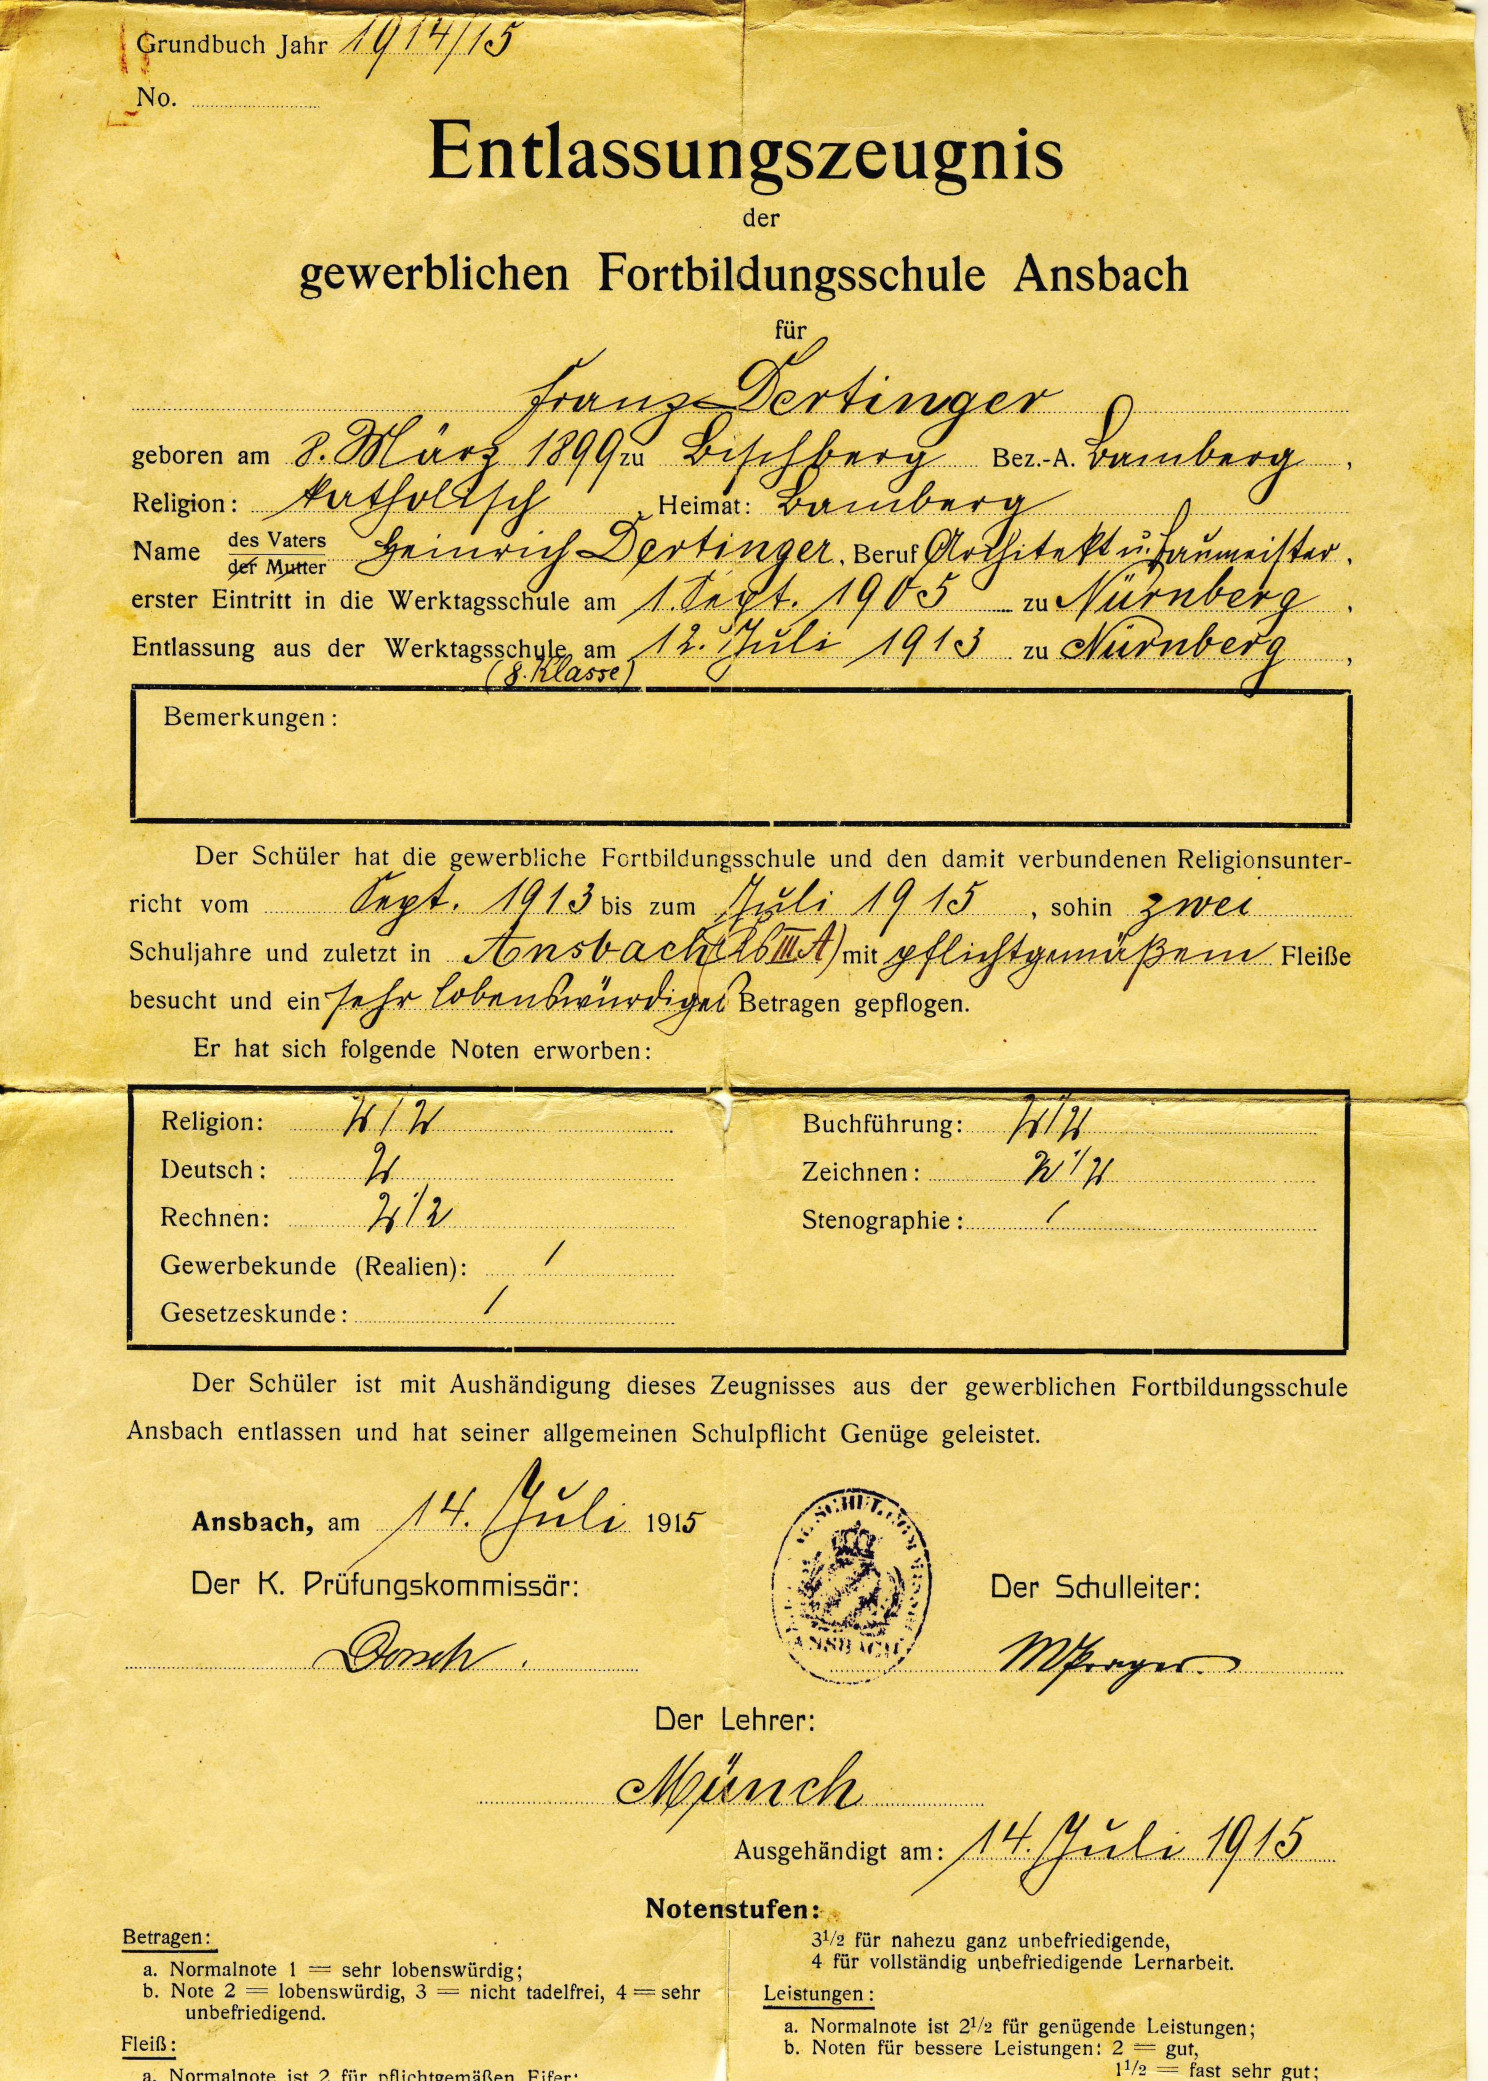 Grundbuch Jahr 1914/15
No.
Entlassungszeugnis
der
gewerblichen Fortbildungsschule Ansbach
für
Franz Dertinger
geboren am 8. März 1899 zu Bischberg Bez.-A. Bamberg,
Religion: katholisch, Heimat: Bamberg
Name des Vaters der Mutter Heinrich Dertinger, Beruf Architekt u. Baumeister,
erster Eintritt in die Werktagsschule am 1. Sept. 1905 zu Nürnberg,
Entlassung aus der Werktagsschule am 12. Juli 1913 zu Nürnberg,
(8. Klasse)
Bemerkungen:
Der Schüler hat die gewerbliche Fortbildungsschule und den damit verbundenen Religionsunter-
richt vom Sept. 1913 bis zum Juli 1915, sohin zwei
Schuljahre und zuletzt in Ansbach III A) mit pflichtgemäßem Fleiße
besucht und ein sehr lobenswürdiges Betragen gepflogen.
Er hat sich folgende Noten erworben:
Religion: 2 1/2
Deutsch: 2
Rechnen: 2 1/2
Gewerbekunde (Realien): /
Gesetzeskunde: /
Buchführung: 2 1/2
Zeichnen: 2 1/2
Stenographie: /
Der Schüler ist mit Aushändigung dieses Zeugnisses aus der gewerblichen Fortbildungsschule
Ansbach entlassen und hat seiner allgemeinen Schulpflicht Genüge geleistet.
Ansbach, am 14. Juli 1915
Der K. Prüfungskommissär:
Der Schulleiter:
ANSBACH
Der Lehrer:
Münch
Ausgehändigt am: 14. Juli 1915
Notenstufen:
Betragen:
a. Normalnote 1 = sehr lobenswürdig;
b. Note 2 = lobenswürdig, 3 = nicht tadelfrei, 4 = sehr
unbefriedigend.
Fleiß:
a. Normalnote ist 2 für pflichtgemäßen Eifer;
3½ für nahezu ganz unbefriedigende,
4 für vollständig unbefriedigende Lernarbeit.
Leistungen:
a. Normalnote ist 2½ für genügende Leistungen;
b. Noten für bessere Leistungen: 2 = gut,
1½ = fast sehr gut;